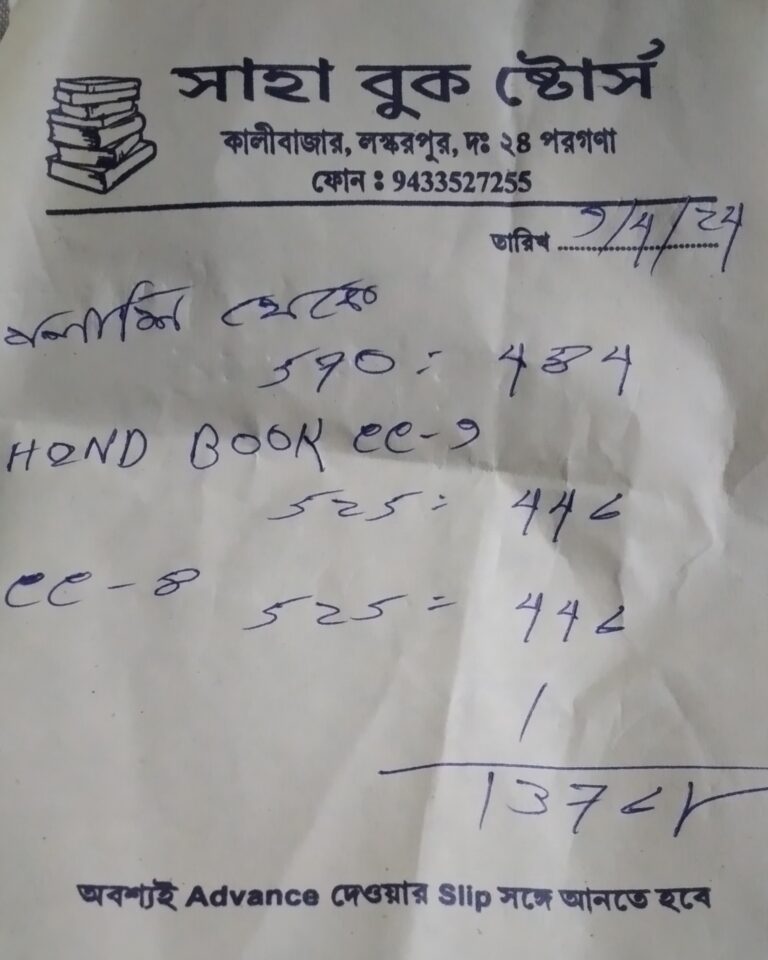 সাহা বুক ষ্টোর্স
কালীবাজার, লস্করপুর, দঃ ২৪ পরগণা
ফোন : 9433527255
তারিখ 9/4/24
570 = 484
HAND BOOK CC-9
525 = 446
CC-8
525 = 446
1
1376
অবশ্যই Advance দেওয়ার Slip সঙ্গে আনতে হবে